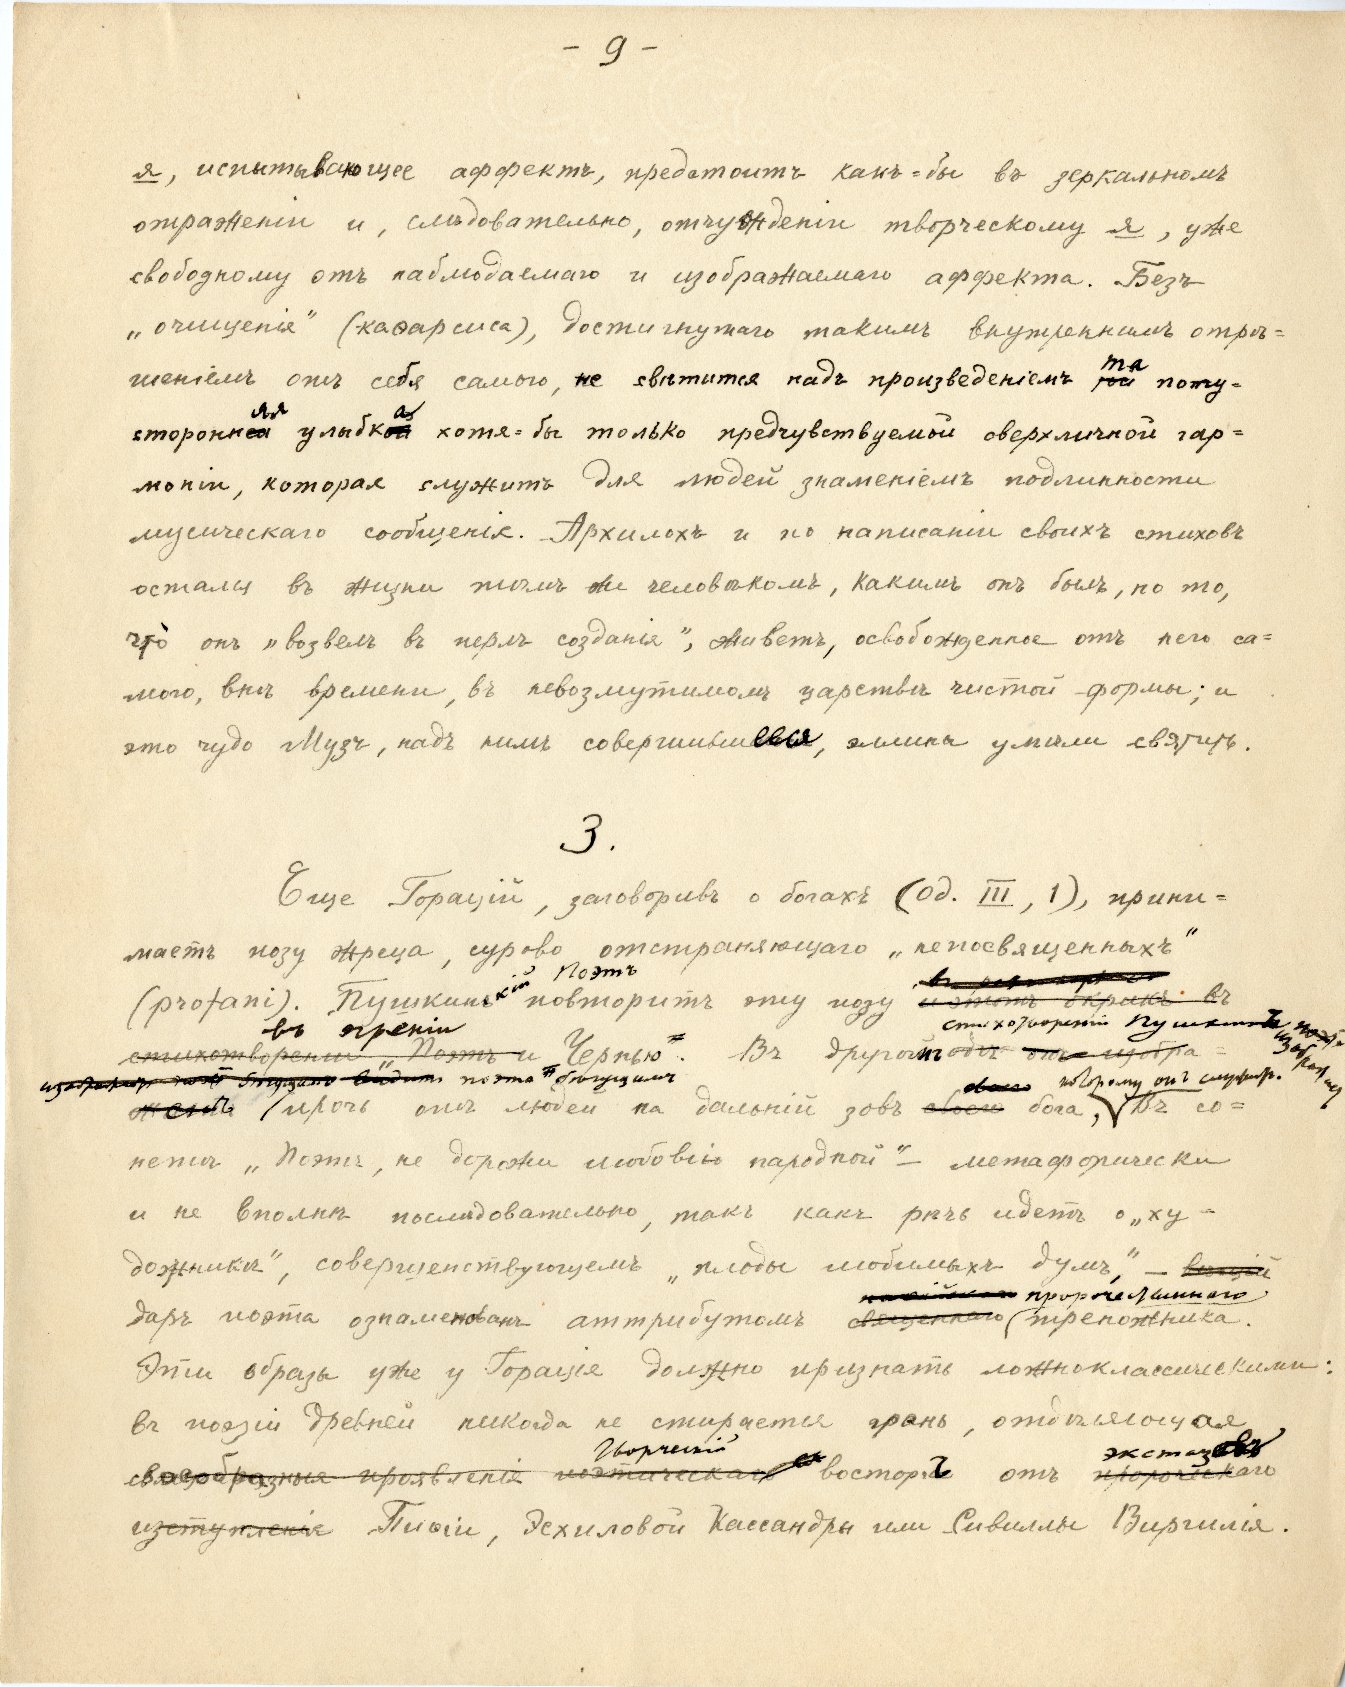 - 9 -
я, испытывающее аффектъ, предстоитъ какъ=бы въ зеркальномъ
отраженіи и, слѣдовательно, отчужденіи творческому я, уже
свободному отъ наблюдаемаго и изображаемаго аффекта. Безъ
„очищенія" (каѳарсиса), достигнутаго такимъ внутреннимъ отрѣ=
шеніемъ отъ себя самого, не свѣтится надъ произведеніемъ та поту=
сторонняя улыбка хотя=бы только предчувствуемой сверхличной гар=
моніи, которая служитъ для людей знаменіемъ подлинности
мусическаго сообщенія. Архилохъ и по написаніи своихъ стиховъ
остался въ жизни тѣмъ же человѣкомъ, какимъ онъ былъ, но то,
что онъ „возвелъ въ перлъ созданія", живетъ, освобожденное отъ него са=
мого, внѣ времени, въ невозмутимомъ царствѣ чистой формы; и
это чудо Музъ, надъ нимъ совершившееся, эллины умѣли святить.
3.
Еще Горацій, заговоривъ о богахъ (Od. III, 1), прини=
маетъ позу жреца, сурово отстраняющаго „непосвященныхъ"
Поэтъ
(profani). Пушкинскій повторитъ эту позу и этотъ окрикъ въ
въ преніи стихотвореніи Пушкинъ
стихотвореніи „Поэтъ и Чернью". Въ другой одѣ онъ изобра=
изображаетъ
поэта бѣгущимъ которому онъ служитъ.
жаетъ прочь отъ людей на дальній зовъ своего бога, Въ со=
нетѣ „Поэтъ, не дорожи любовію народной" – метафорически
и не вполнѣ послѣдовательно, такъ какъ рѣчь идетъ о „ху=
дожникѣ", совершенствующемъ „плоды любимыхъ думъ", – вѣщій
пророчественнаго
даръ поэта ознаменованъ аттрибутомъ священнаго треножника.
Эти образы уже у Горація должно признать ложноклассическими:
въ поэзіи древней никогда не стирается грань, отдѣляющая
творческій экстазовъ
своеобразныя проявленія поэтическаго восторгъ отъ пророческаго
изступленія Пиѳіи, Эсхиловой Кассандры или Сивиллы Виргилія.